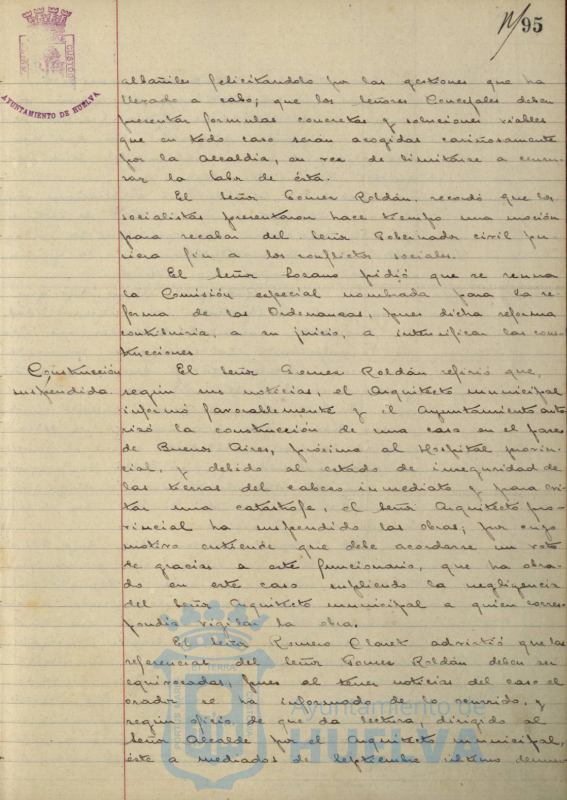 95
AYUNTAMIENTO DE HUELVA
albañiles felicitandolo por las gestiones que ha
llevado a cabo; que los señores Concejales deben
presentar formulas concretas y soluciones viables
que en todo caso serán acogidas cariñosamente
por la Alcaldia, en vez de limitarse a censu-
rar la labor de ésta.
El Señor Gomez Roldán, recordó que los
socialistas presentaron hace tiempo una moción
para recabar del Señor Gobernador civil pu-
siera fin a los conflictos sociales.
El Señor Lozano pidió que se reuna
la Comisión especial nombrada para la re-
forma de las Ordenanzas, pues dicha reforma
contribuiria, a su juicio, a intensificar las cons-
trucciones
Construcción
suspendida
El Señor Gomez Roldán refirió que,
según sus noticias, el Arquitecto municipal
informó favorablemente y el Ayuntamiento auto-
rizó la construcción de una casa en el paseo
de Buenos Aires, próxima al Hospital provin-
cial, y debido al estado de inseguridad de
las tierras del cabezo inmediato y para evi-
tar una catástrofe, el Señor Arquitecto pro-
vincial ha suspendido las obras; por cuyo
motivo entiende que debe acordarse un voto
de gracias a este funcionario, que ha obra-
do en este caso supliendo la negligencia
del Señor Arquitecto municipal a quien corres-
pondia vigilar la obra.
El Señor Romero Claret advirtió que las
referencias del Señor Gomez Roldán deben ser
equivocadas, pues al tener noticias del caso el
orador se ha informado de lo ocurrido, y
según oficio, de que da lectura, dirigido al
Señor Alcalde por el Arquitecto municipal,
éste a mediados de Septiembre último denun-
Ayuntamiento de
HUELVA